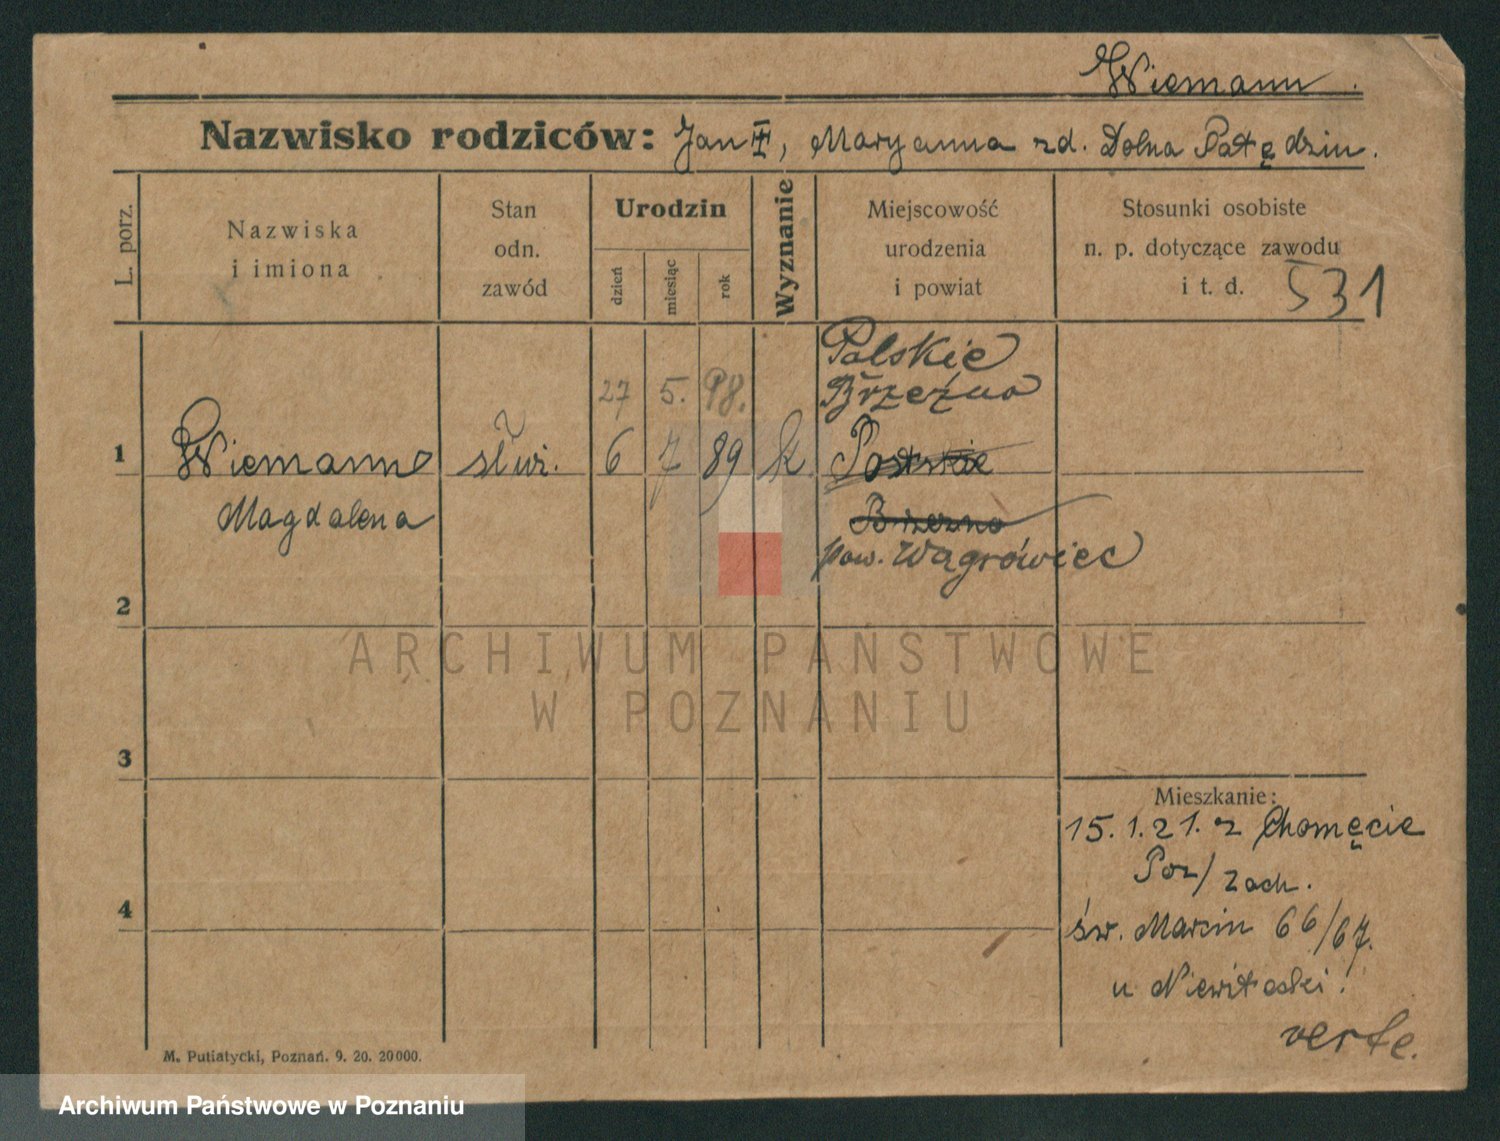 Wiemann.
Nazwisko rodziców: Jan, Maryanna zd. Dolna
L. porz.
Nazwiska
i imiona
Stan
odn.
zawód
Urodzin
dzień
miesiąc
rok
Wyznanie
Miejscowość
urodzenia
i powiat
Stosunki osobiste
n. p. dotyczące zawodu
i t. d.
531
Polskie
Brzeźno
27 5. 98.
1 Wiemann służ. 6 7 89 k.
Magdalena
Brzezno
pow. Wągrówiec
2
3
4
Mieszkanie:
15.1.21. z Chomęcie
Poz/zach.
św. Marcin 66/67.
u
verte.
M. Putiatycki, Poznań. 9. 20. 20000.
ARCHIWUM PAŃSTWOWE
W POZNANIU
Archiwum Państwowe w Poznaniu